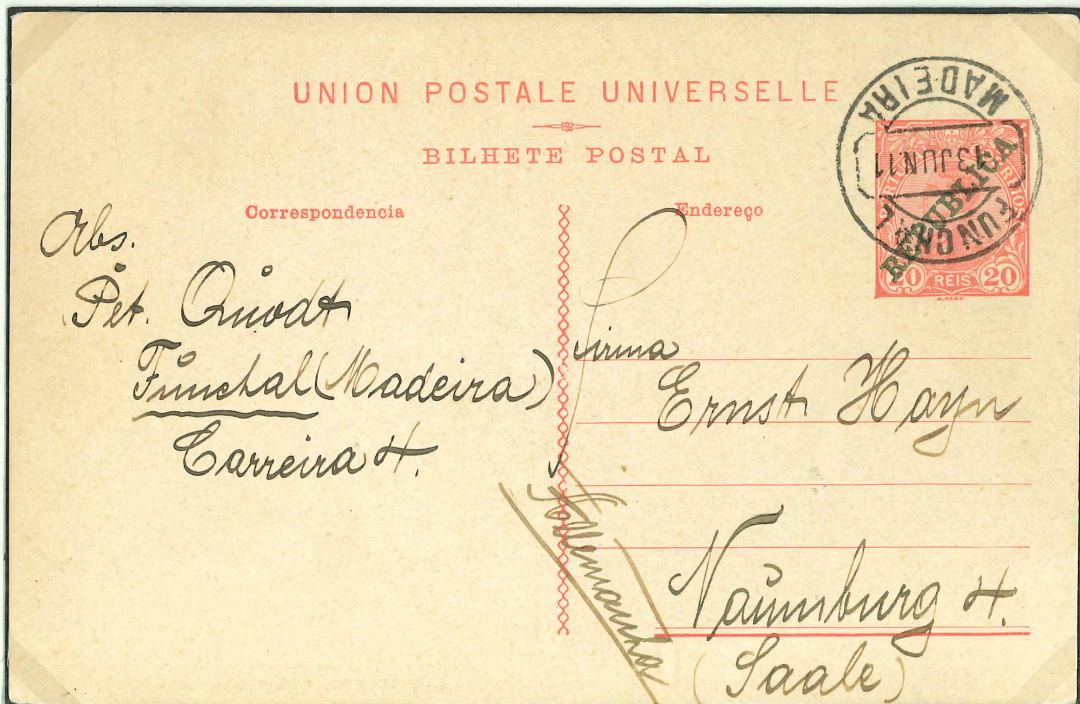 UNION POSTALE UNIVERSELLE
BILHETE POSTAL
Correspondencia
Endereço
MADEIRA
13 JUN 11
FUNCHAL
REPUBLICA
20 REIS 20
Abs.
Pet. Quodt
Funchal (Madeira)
Carreira 4.
Firma
Ernst Hayn
Allemanha
Naumburg
(Saale)